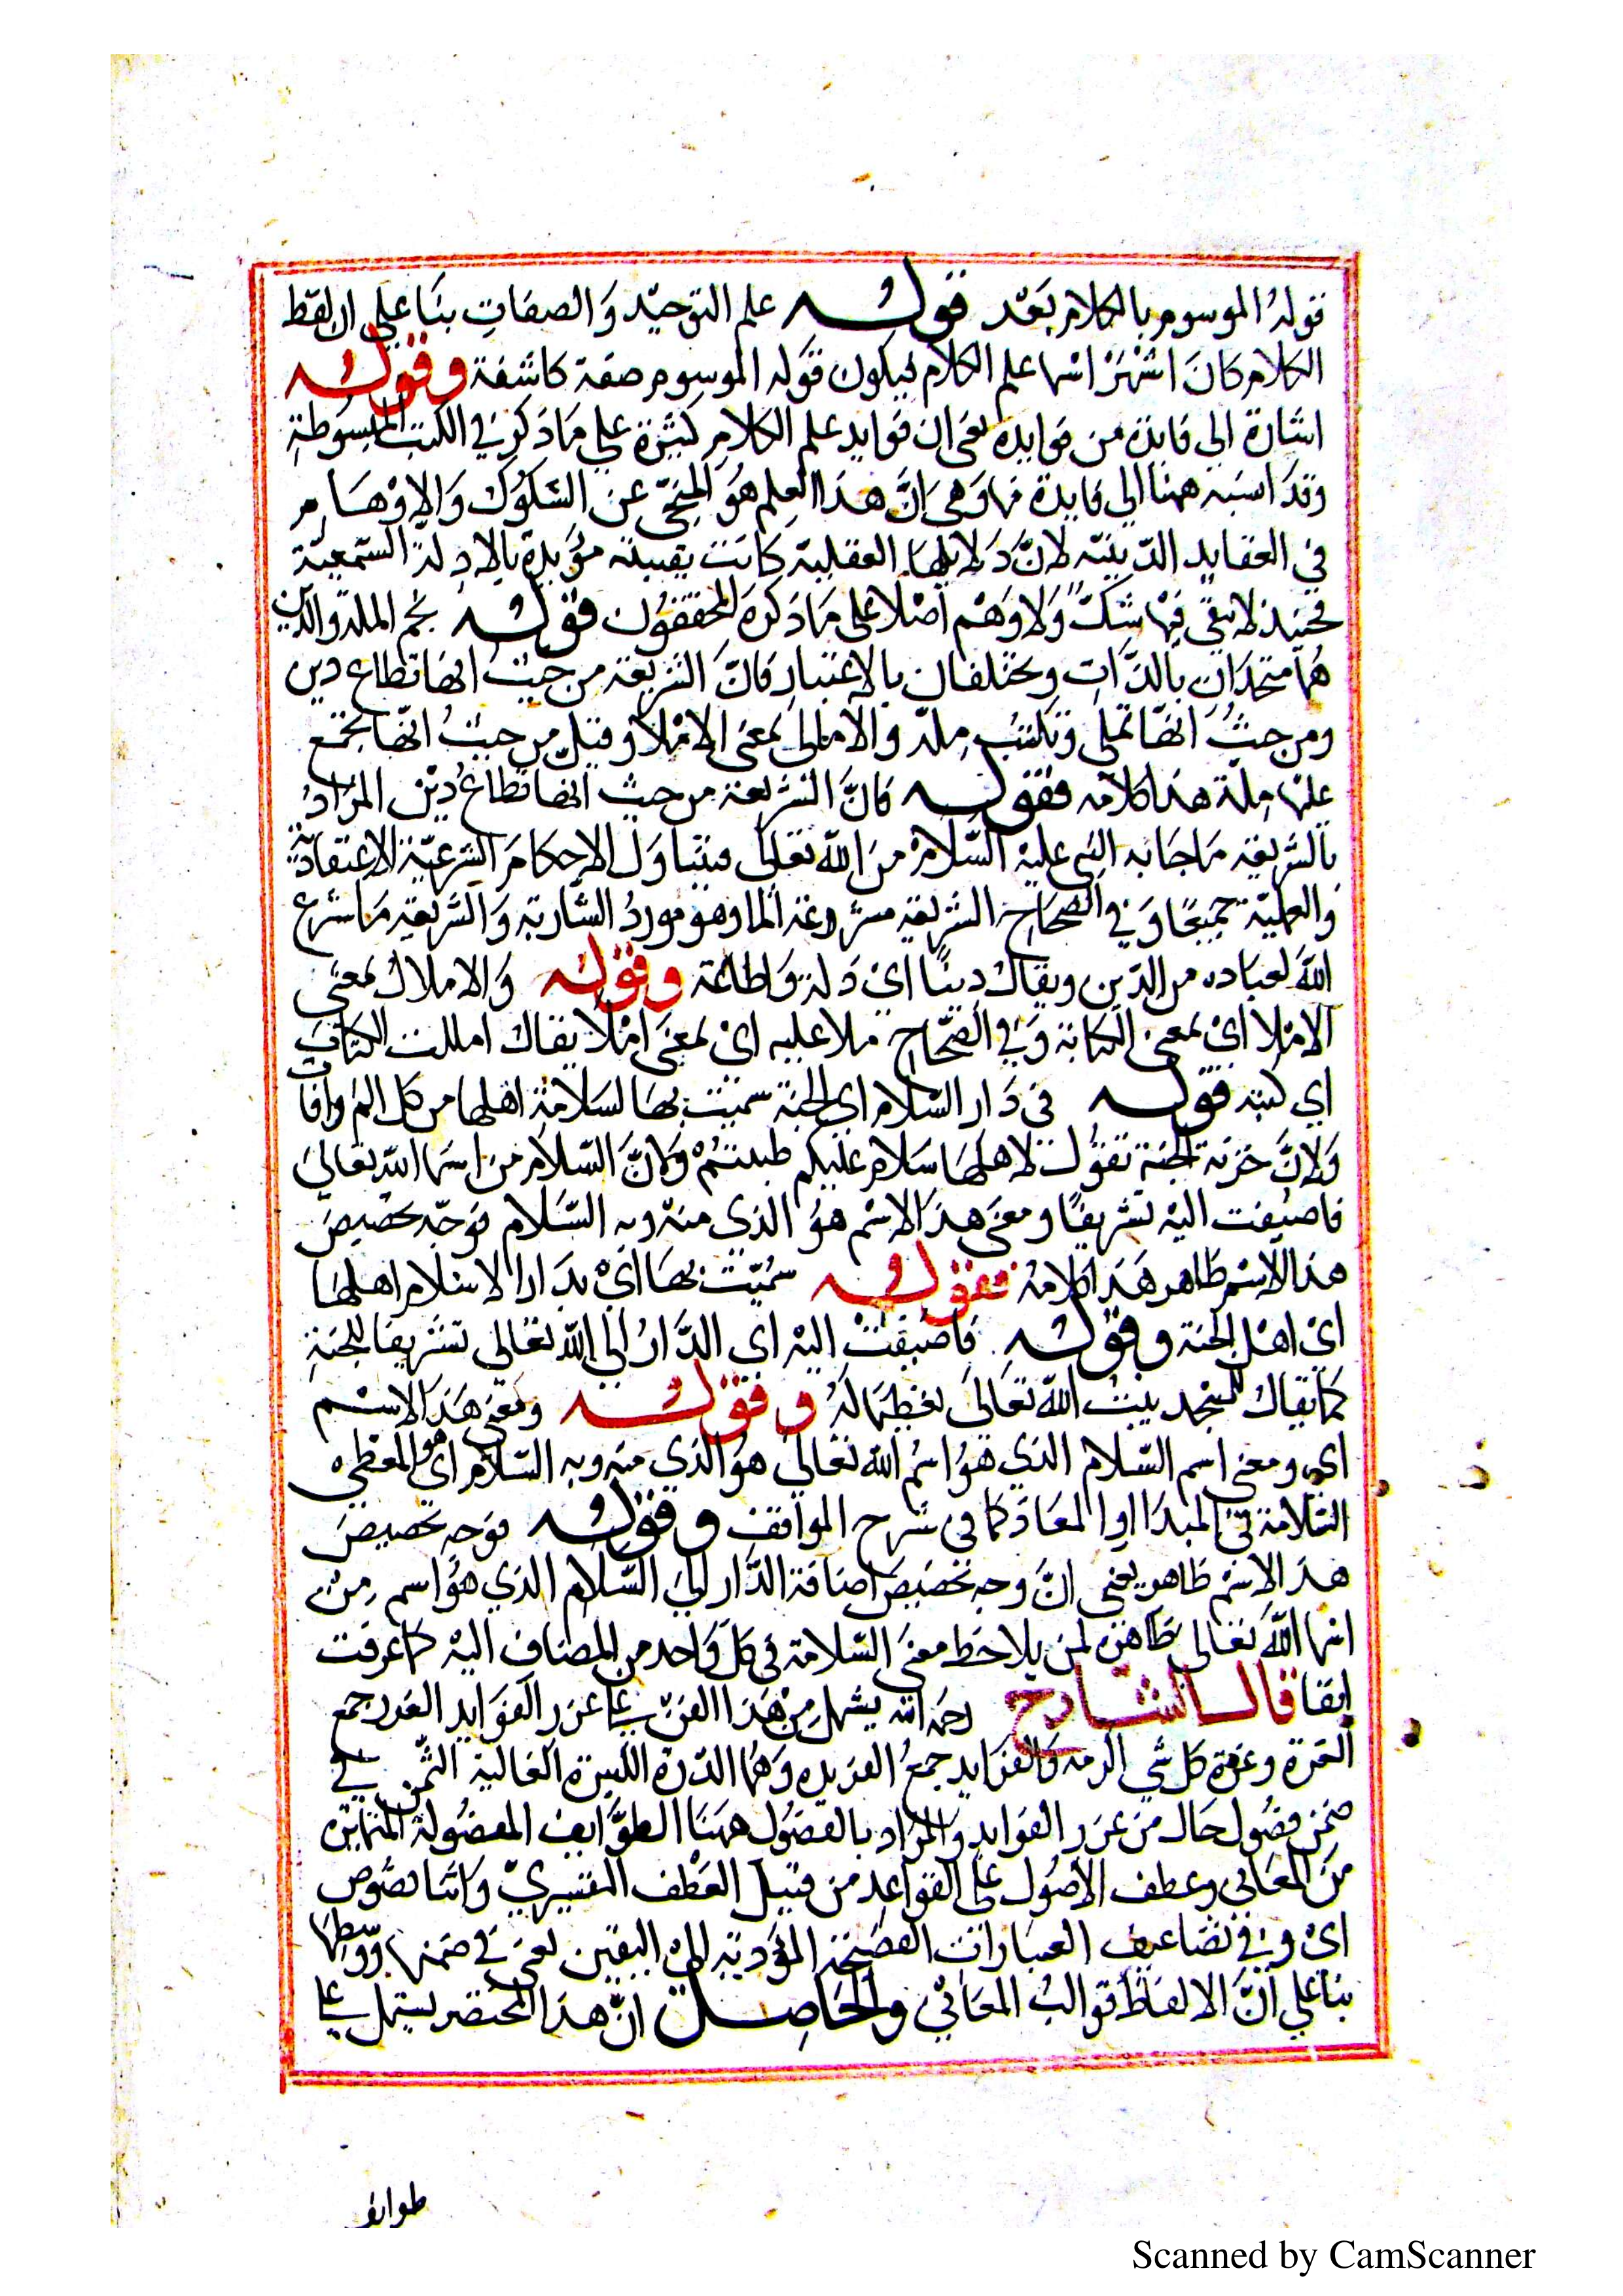 قوله الموسوم بالكلام بعد قوله علم التوحيد والصفات بنا على ان لفظ
الكلام كان اشهر اسما علم الكلام ليكون قوله الموسوم صفة كاشفة وقوله
اشارة الى فايدة من فوايده يعني ان فوايد علم الكلام كثيرة على ما ذكر في الكتب المبسوطة
وقد اسند ههنا الى فايدة منها وهي ان هذا العلم هو المنجى عن الشكوك والاوهام
في العقايد الدينية لان دلايلها العقلية كانت يقينية مؤيدة بالادلة السمعية
فحينئذ لا يبقى فيها شك ولا وهم اصلا على ما ذكره المحققون قوله نجم الملة والدين
هما متحدان بالذات ويختلفان بالاعتبار فان الشريعة من حيث انها تطاع دين
ومن حيث انها تملى وتكتب ملة والاملال بمعنى الاملا وقيل من حيث انها تجتمع
عليها ملة هذا كلامه فقوله فان الشريعة من حيث انها تطاع دين المراد
بالشريعة ما جا به النبي عليه السلام من الله تعالى فيتناول الاحكام الشرعية الاعتقادية
والعملية جميعا وفي الصحاح الشريعة مشروعة الما وهو مورد الشاربة والشريعة ما شرع
الله لعباده من الدين ويقال دينا اي دلة واطاعة وقوله والاملال بمعنى
الاملا اي بمعنى الكتابة وفي الصحاح ملا عليه اي بمعنى املا يقال امللت الكتاب
اي كتبته قوله في دار السلام اي الجنة سميت بها لسلامة اهلها من كل الم وافات
ولان خزنة الجنة تقول لاهلها سلام عليكم طبتم ولان السلام من اسما الله تعالى
فاضيفت اليه تشريفا ومعنى هذا الاسم هو الذي منه وبه السلام فوجه تخصيص
هذا الاسم ظاهر هذا كلامه فقوله سميت بها اي بدار الاسلام اهلها
اي اهل الجنة وقوله فاضيفت اليه اي الدار الى الله تعالى تشريفا للجنة
كما يقال للمسجد بيت الله تعالى تعظيما له وقوله ومعنى هذا الاسم
اي ومعنى اسم السلام الذي هو اسم الله تعالى هو الذي منه وبه السلام اي هو المعطي
السلامة في المبدا او المعاد كما في شرح المواقف وقوله فوجه تخصيص
هذا الاسم ظاهر يعني ان وجه تخصيص اضافة الدار الى السلام الذي هو اسم من
اسما الله تعالى ظاهر لمن يلاحظ معنى السلامة في كل واحد من المضاف اليه كما عرفت
انفا قال الشارح رحمه الله يشمل من هذا الفن على غرر الفوايد الغرر جمع
الغرة وغرة كل شي اكرمه والفرايد جمع الفريده وهما الدرة الكبيرة الغالية الثمن في
ضمن فصول حال من غرر الفوايد والمراد بالفصول ههنا الطوايف المفصولة المتمايزة
من المعاني وعطف الاصول على القواعد من قبيل العطف التفسيري واثنا نصوص
اي وفي تضاعيف العبارات الفصيحة المؤدية الى اليقين يعني في ضمنها ووسطها
بنا على ان الالفاظ قوالب المعاني والحاصل ان هذا المختصر يشمل على
طوايف
Scanned by CamScanner